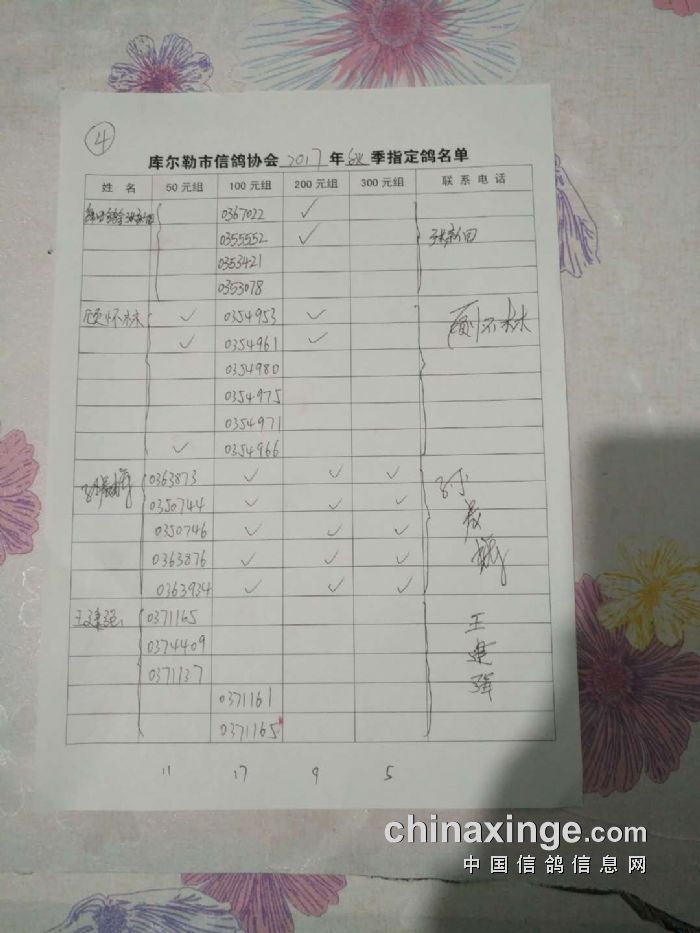 4
库尔勒市信鸽协会2017年秋季指定鸽名单
姓 名 50元组 100元组 200元组 300元组 联系电话
0367022 ✓
0355552 ✓ 张新田
0353421
0353078
顾怀林 ✓ 0354953 ✓ 顾怀林
✓ 0354961 ✓
0354980
0354975
0354971
✓ 0354966
0363873 ✓ ✓ ✓
0350744 ✓ ✓ ✓
0350746 ✓ ✓ ✓
0363876 ✓ ✓ ✓
0363934 ✓ ✓ ✓
王建强 0371165 王建强
0374409
0371137
0371161
0371165
11 17 9 5
chinaxinge.com
中国信鸽信息网